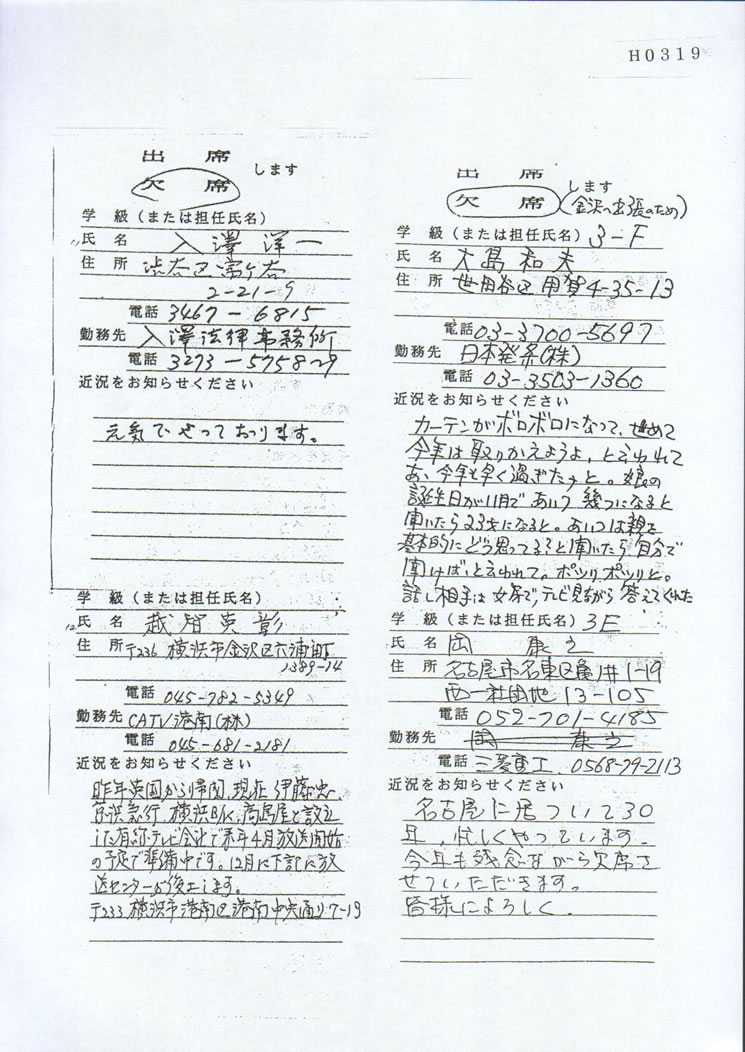 H0319
出 席
欠 席
します
学 級（または担任氏名）
氏 名 入澤 洋一
住 所 渋谷区
2-21-9
電話 3467-6815
勤務先 入澤法律事務所
電話 3273-5758~9
近況をお知らせください
元気でやっております。
学 級（または担任氏名）
12 氏 名 越智 英彰
住 所 〒236 横浜市金沢区六浦町
1389-14
電話 045-782-5349
勤務先 CATV港南(株)
電話 045-681-2181
近況をお知らせください
昨年英国から帰国、現在 伊藤忠、
京浜急行、横浜Bk、高島屋と設立
した有線テレビ会社で来年4月放送開始
の予定で準備中です。12月に下記に放
送センターが竣工します。
〒233 横浜市港南区港南中央通り7-19
出 席
欠 席
します
(金沢へ出張のため)
学 級（または担任氏名）3-F
氏 名 大島 和夫
住 所 世田谷区用賀4-35-13
電話 03-3700-5697
勤務先 日本発条(株)
電話 03-3503-1360
近況をお知らせください
カーテンがボロボロになって、せめて
今年は取りかえようよ、と云われて
あゝ今年も早く過ぎたナと。娘の
誕生日が11月で あいつ 幾つになると
聞いたら23才になると。あいつは親を
基本的にどう思ってると聞いたら自分で
聞けば、と云われて。ポツリポツリと。
話し相手は女房で、テレビ見ながら 答えてくれた
学 級（または担任氏名）3E
氏 名 岡 康之
住 所 名古屋市名東区亀の井1-19
西一社団地 13-105
電話 052-701-4185
勤務先 岡 康之
電話 三菱重工 0568-79-2113
近況をお知らせください
名古屋に居ついて30
年、忙しくやっています。
今年も残念ながら欠席さ
せていただきます。
皆様によろしく。